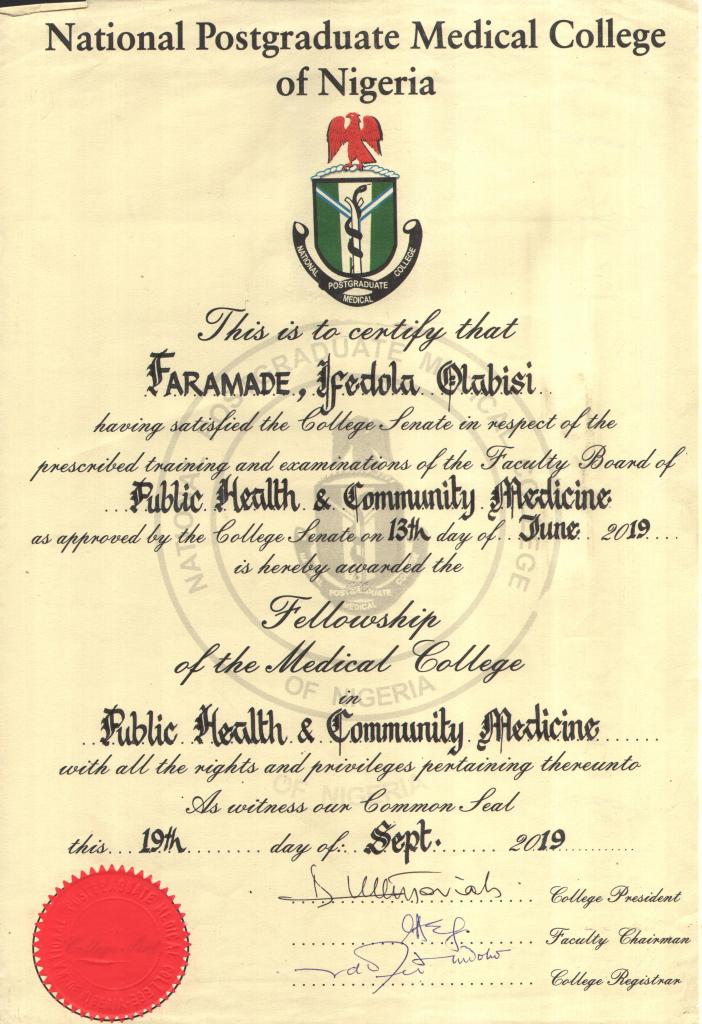 National Postgraduate Medical College
of Nigeria
NATIONAL POSTGRADUATE MEDICAL COLLEGE
This is to certify that
FARAMADE, Ifedola Olabisi
having satisfied the College Senate in respect of the
prescribed training and examinations of the Faculty Board of
Public Health & Community Medicine
as approved by the College Senate on 13th day of June 2019
is hereby awarded the
Fellowship
of the Medical College
in
Public Health & Community Medicine
with all the rights and privileges pertaining thereunto
As witness our Common Seal
this 19th day of: Sept. 2019
College President
Faculty Chairman
College Registrar